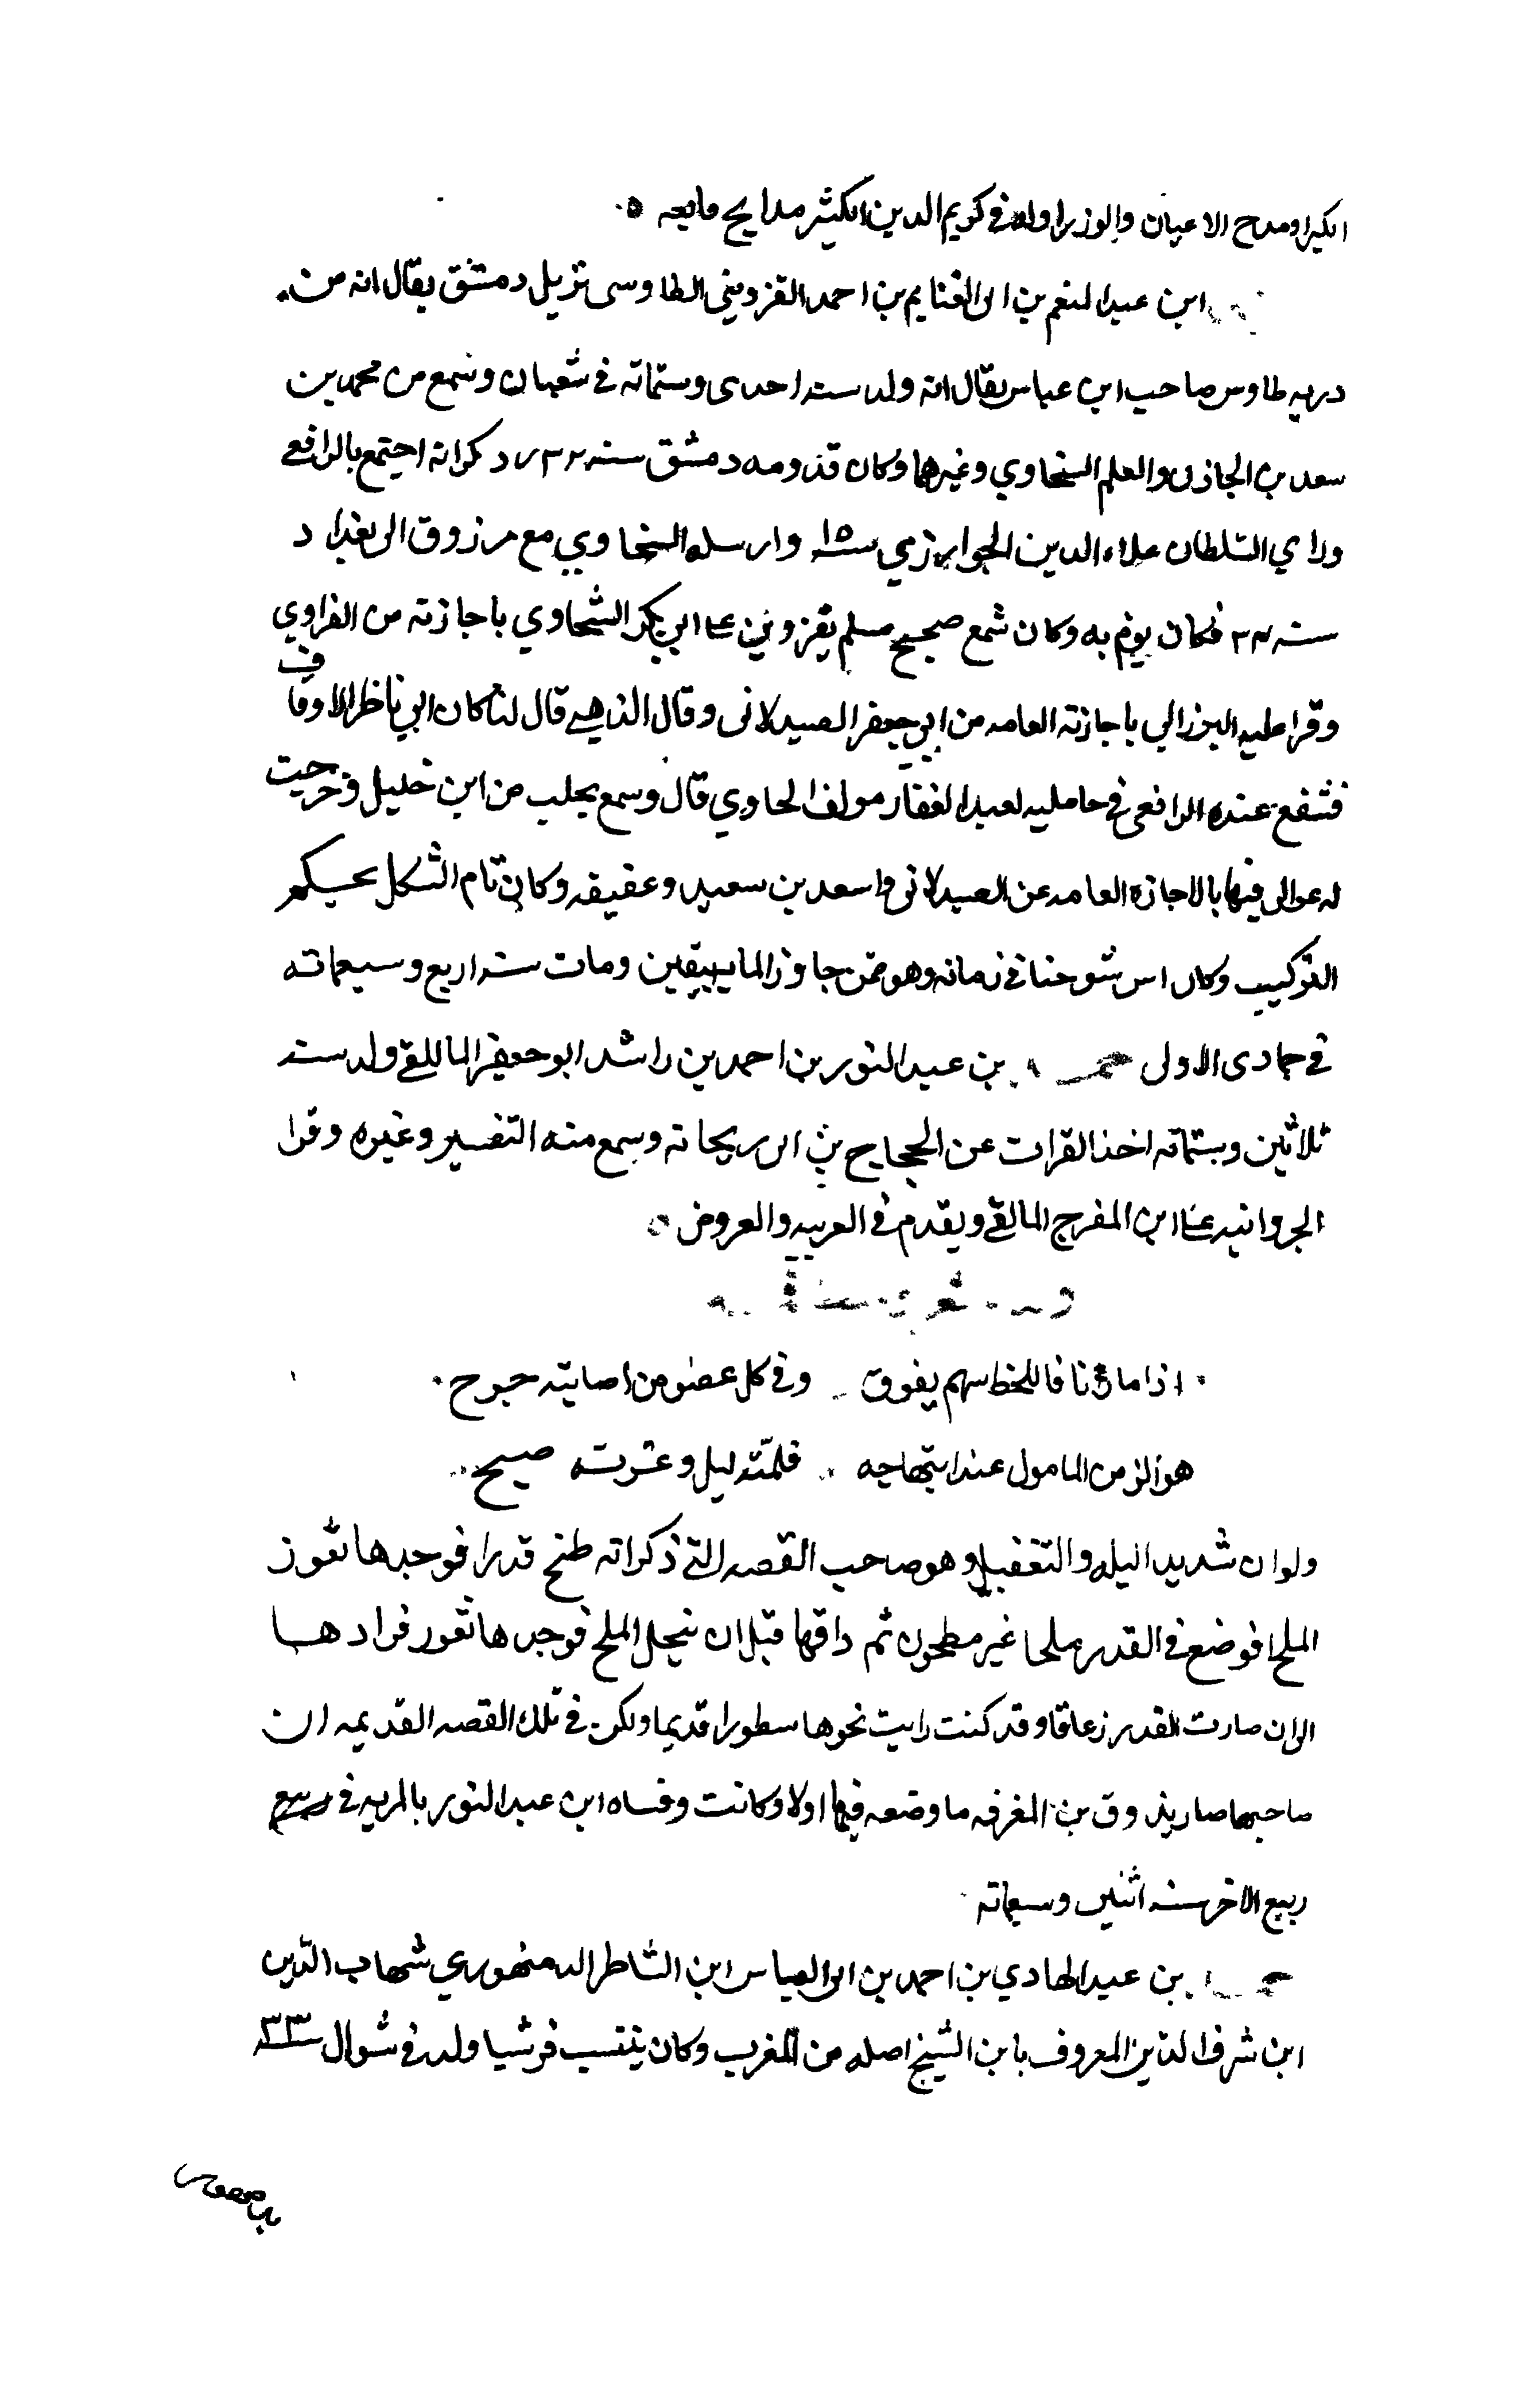 الكبرا ومدح الاعيان والوزرا وله في كريم الدين الكثير مدايح فايعه ه
ابن عبد المنعم بن ابي الغنايم بن احمد القزويني الطاوسي نزيل دمشق يقال انه من
دريه طاوس صاحب ابن عباس يقال انه ولد سنه احدى وستمائه في شعبان وسمع من محمد بن
سعد بن الخازن والعلم السخاوي وغيرهما وكان قدومه دمشق سنه ٣٢ ذكر انه اجتمع بالرافعي
وراي السلطان علاء الدين الخوارزمي سنه ١٥ وارسله السخاوي مع مرزوق الى بغداد
سنه ٣٤ فكان يوم به وكان سمع صحيح مسلم بقزوين على ابي بكر الشحاوي باجازته من الفراوي
وقرا عليه البرزالي باجازته العامه من ابي جعفر الصيدلاني وقال الذهبي قال لنا كان ابي ناظر الاوقاف
فشفع عنده الرافعي في حامليه لعبد الغفار مولف الحاوي قال وسمع بحلب من ابن خليل وخرجت
له عوالي فيها بالاجازه العامه عن الصيدلاني واسعد بن سعيد وعفيفه وكان تام الشكل محكم
التركيب وكان اسن شيوخنا في زمانه وهو ممن جاوز المايه بيقين ومات سنه اربع وسبعمائه
في جمادى الاولى بن عبد النور بن احمد بن راشد ابو جعفر المالقي ولد سنه
ثلاثين وستمائه اخذ القرات عن الحجاج بن ابي ريحانه وسمع منه التفسير وغيره وقرا
الجروانيه على ابن المفرج المالقي ويقدم في العربيه والعروض ه
اذا ما رنا فاللحظ سهم يفوق وفي كل عضو من اصابته جرح
هو الزمن المامول عند ابتهاجه فلمته ليل وغرته صبح
ولوان شديد البله والتغفيل وهو صاحب القصه التي ذكر انه طبخ قدرا فوجدها تعوز
الملح فوضع في القدر ملحا غير مطحون ثم داقها قبل ان ينحل الملح فوجدها تعوز فزادها
الى ان صارت القدر زعاقا وقد كنت رايت نحوها سطورا قديما ولكن في تلك القصه القديمه ان
صاحبها صار يذوق من المغرفه ما وضعه فيها اولا وكانت وفاه ابن عبد النور بالمريه في
ربيع الاخر سنه اثنين وسبعمائه
بن عبد الهادي بن احمد بن ابي العباس ابن الشاطر الدمنهوري شهاب الدين
ابن شرف الدين المعروف بابن الشيخ اصله من المغرب وكان ينتسب قرشيا ولد في شوال سنه ٣٣